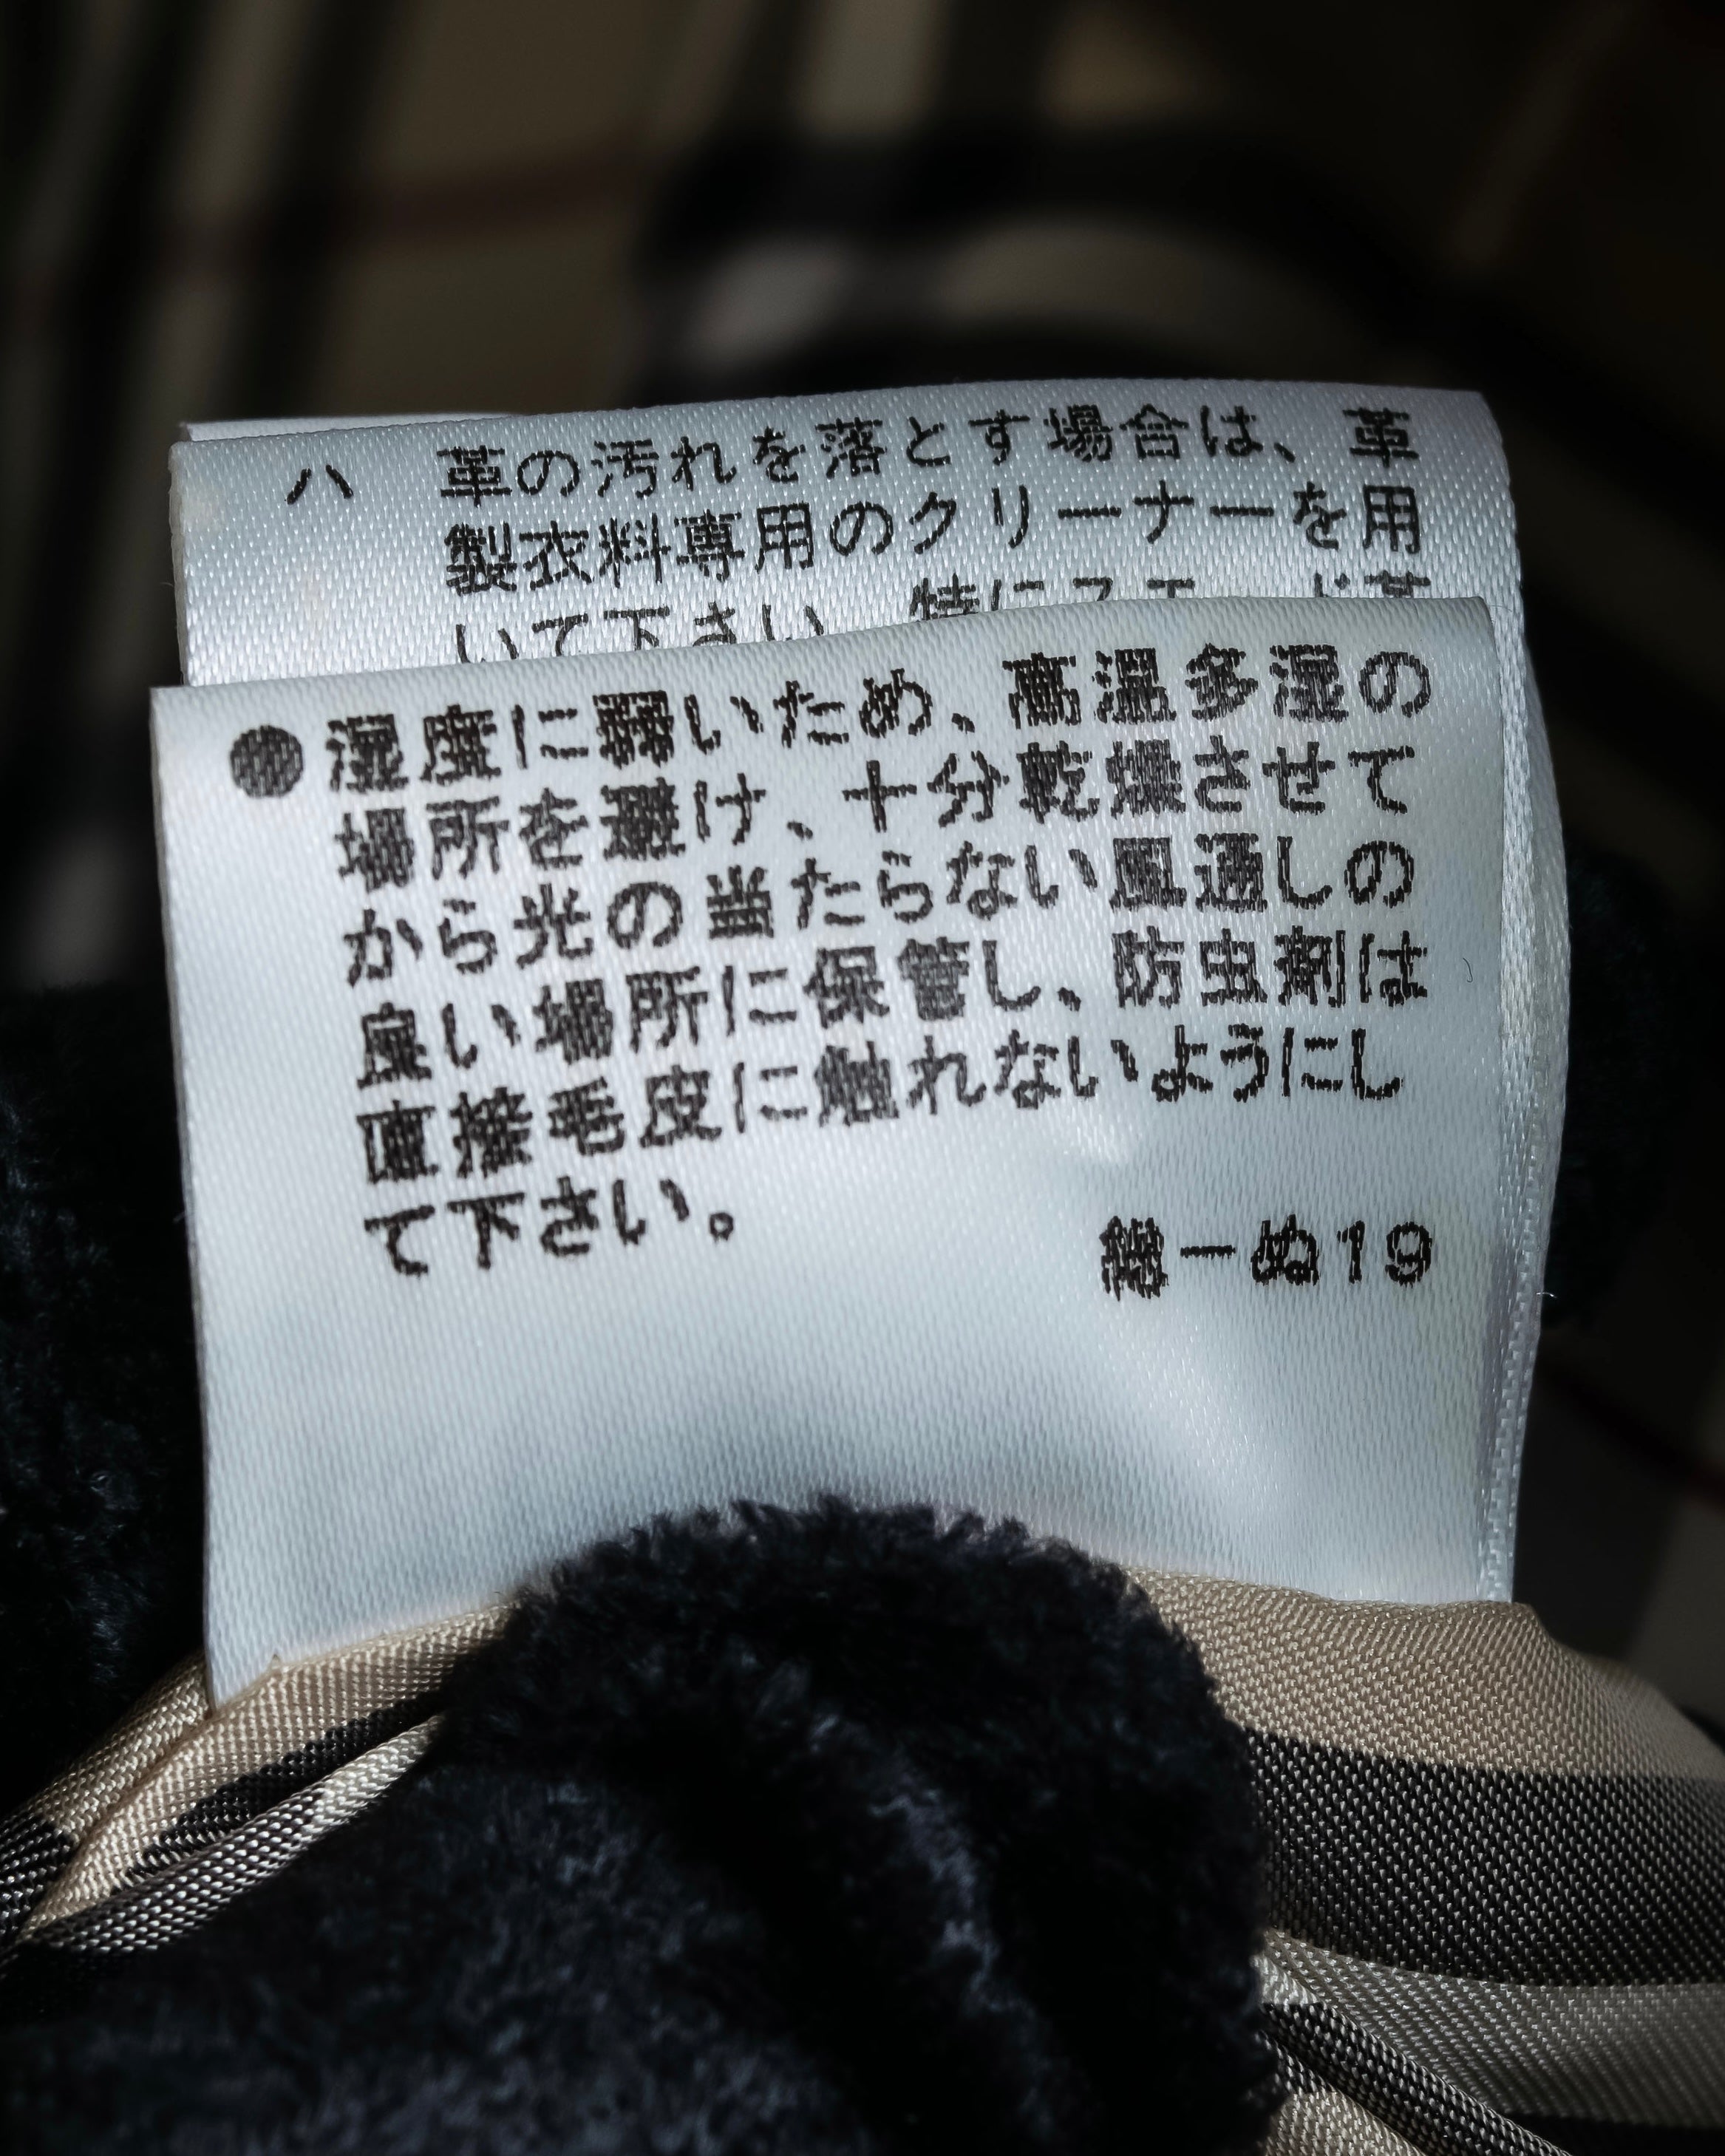 ハ 革の汚れを落とす場合は、革
製衣料専用のクリーナーを用
いて下さい 特にスエード革
●湿度に弱いため、高温多湿の
場所を避け、十分乾燥させて
から光の当たらない風通しの
良い場所に保管し、防虫剤は
直接毛皮に触れないようにし
て下さい。
－ぬ19